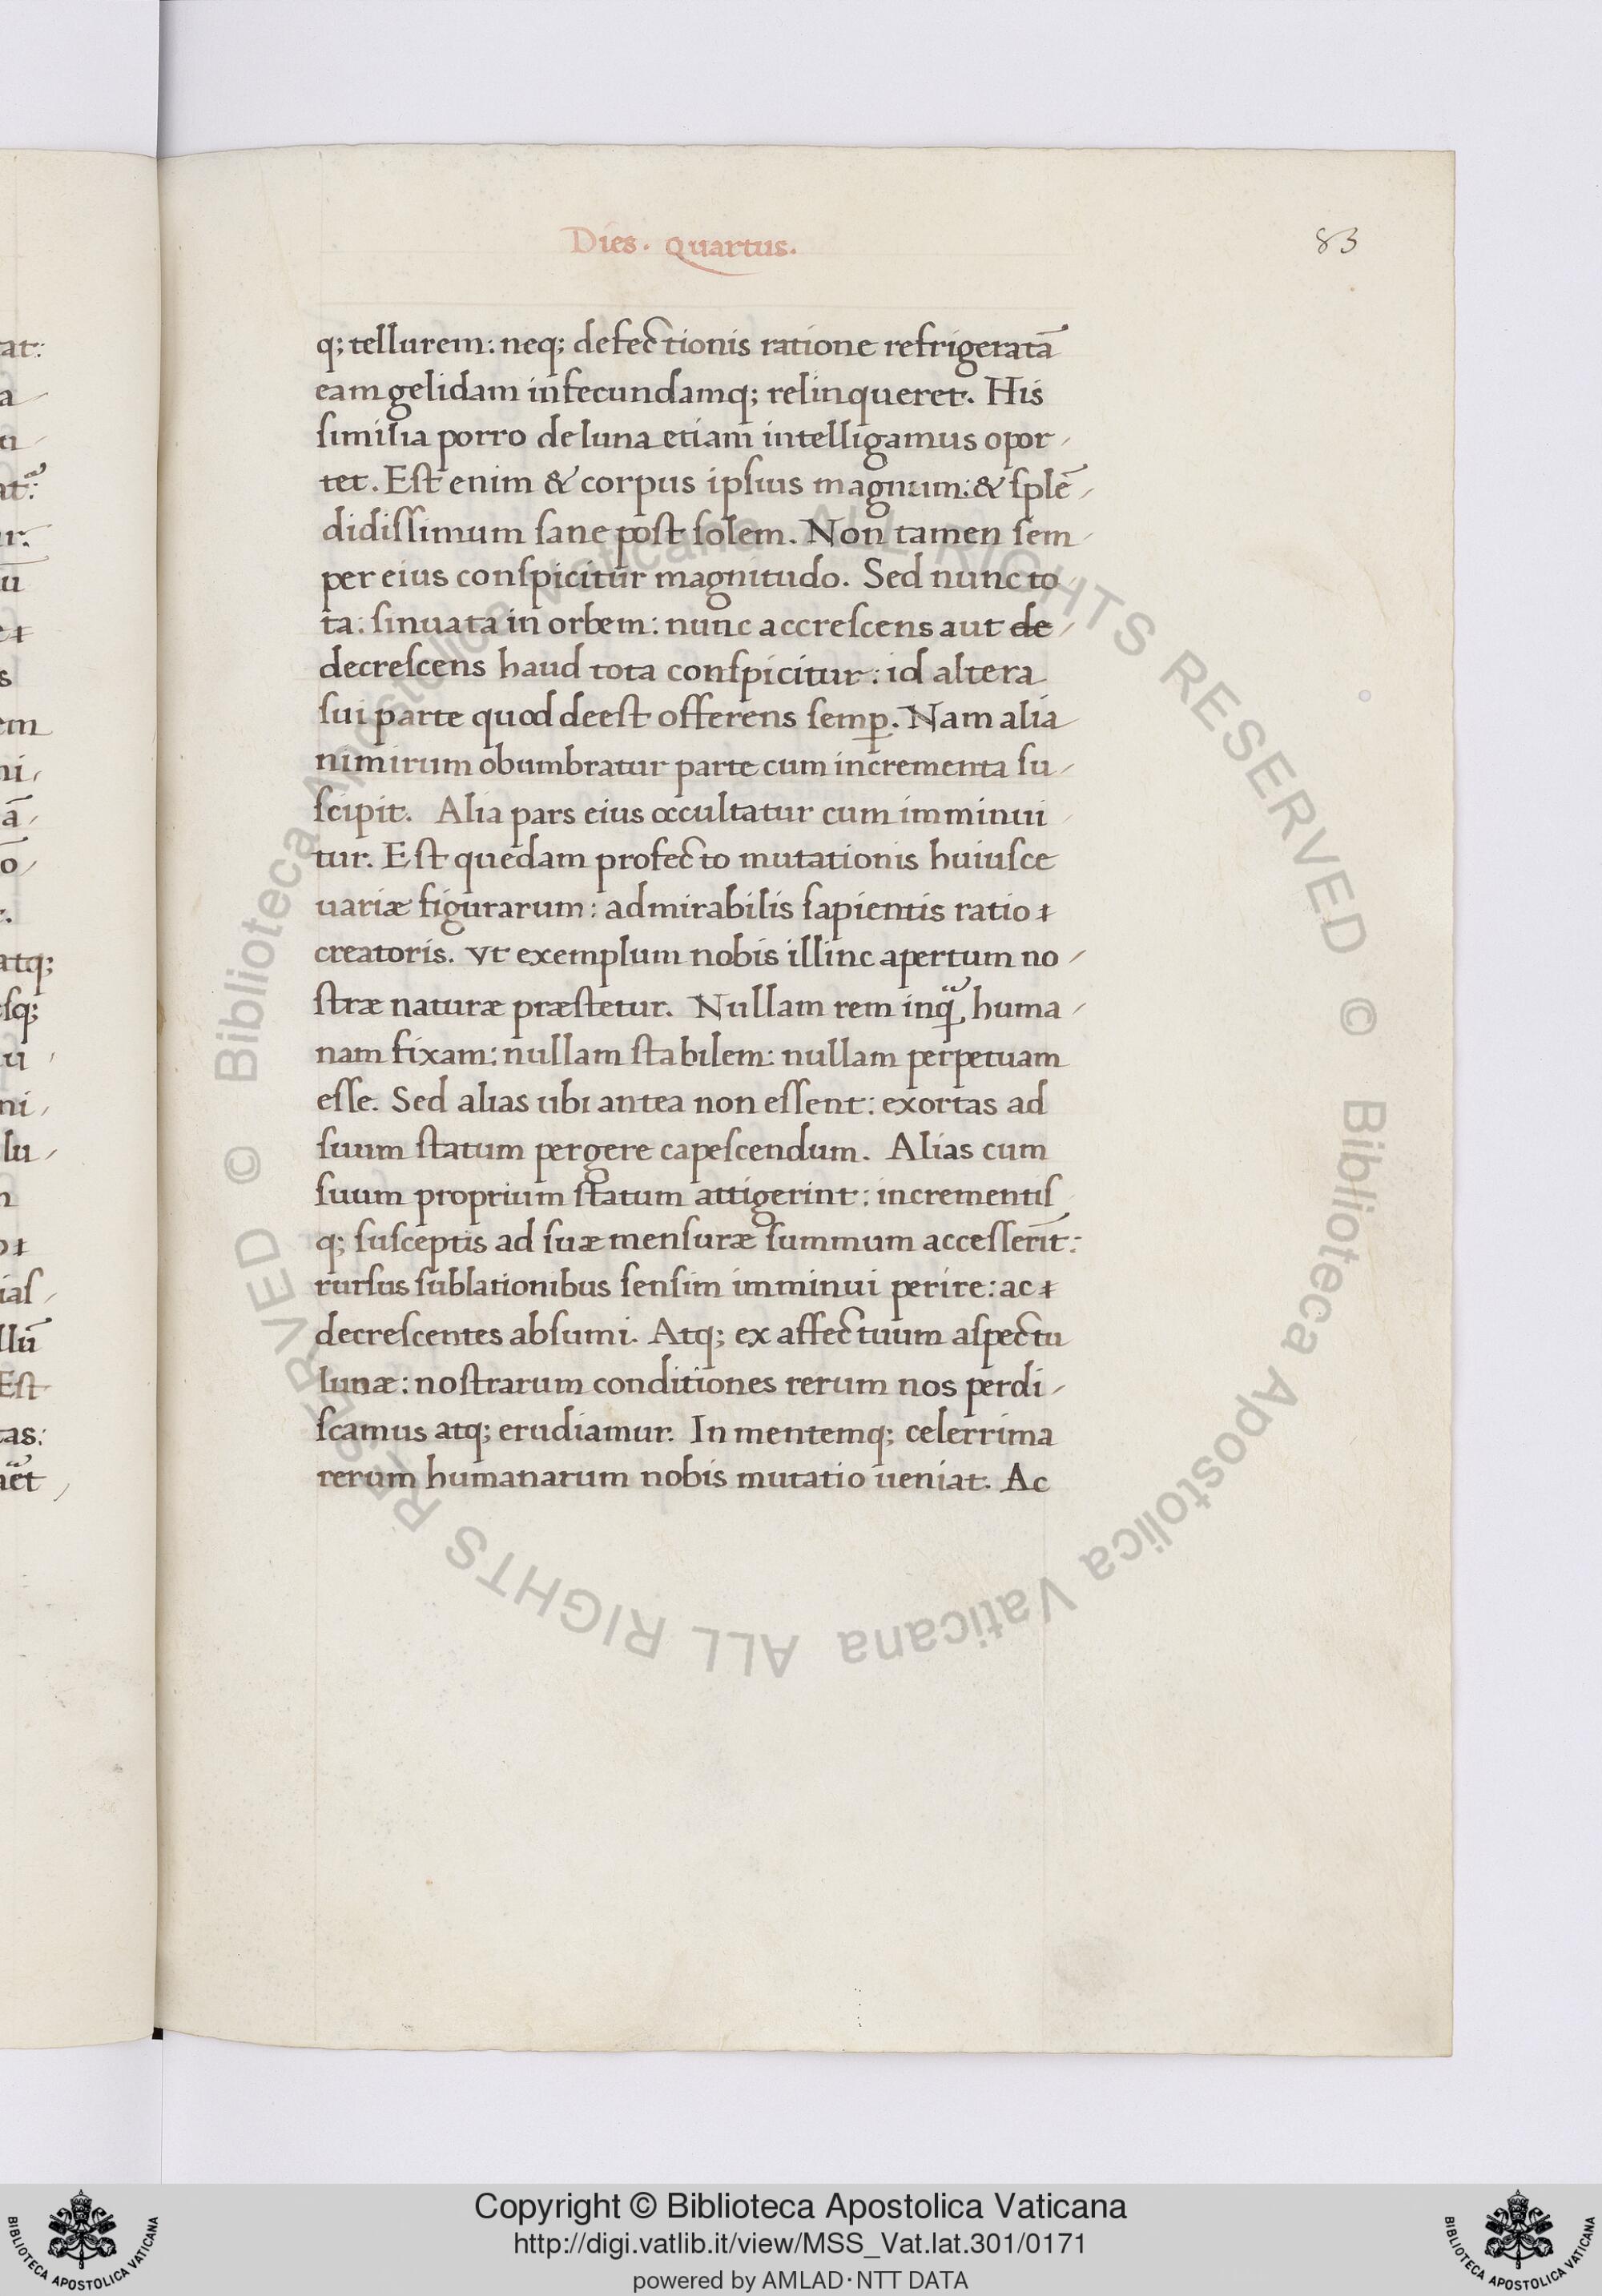 Dies. Quartus.
83
q; tellurem: neq; defectionis ratione refrigeratā
eam gelidam infecundamq; relinqueret. His
similia porro de luna etiam intelligamus opor
tet. Est enim & corpus ipsius magnum: & splē
didissimum sane post solem. Non tamen sem
per eius conspicitur magnitudo. Sed nunc to
ta: sinuata in orbem: nunc accrescens aut de
decrescens haud tota conspicitur: id altera
sui parte quod deest offerens semꝑ. Nam alia
nimirum obumbratur parte cum incrementa su
scipit. Alia pars eius occultatur cum imminui
tur. Est quedam profecto mutationis huiusce
uariæ figurarum: admirabilis sapientis ratio
creatoris. vt exemplum nobis illinc apertum no
stræ naturæ præstetur. Nullam rem inq̃ huma
nam fixam: nullam stabilem: nullam perpetuam
esse. Sed alias ubi antea non essent: exortas ad
suum statum pergere capescendum. Alias cum
suum proprium statum attigerint: incrementis
q; susceptis ad suæ mensuræ summum accesserīt:
rursus sublationibus sensim imminui perire: ac
decrescentes absumi. Atq; ex affectuum aspectu
lunæ: nostrarum conditiones rerum nos perdi
scamus atq; erudiamur. In mentemq; celerrima
rerum humanarum nobis mutatio ueniat. Ac
Copyright © Biblioteca Apostolica Vaticana
http://digi.vatlib.it/view/MSS_Vat.lat.301/0171
powered by AMLAD·NTT DATA
BIBLIOTECA APOSTOLICA VATICANA
BIBLIOTECA APOSTOLICA VATICANA
© Biblioteca Apostolica Vaticana ALL RIGHTS RESERVED
© Biblioteca Apostolica Vaticana ALL RIGHTS RESERVED